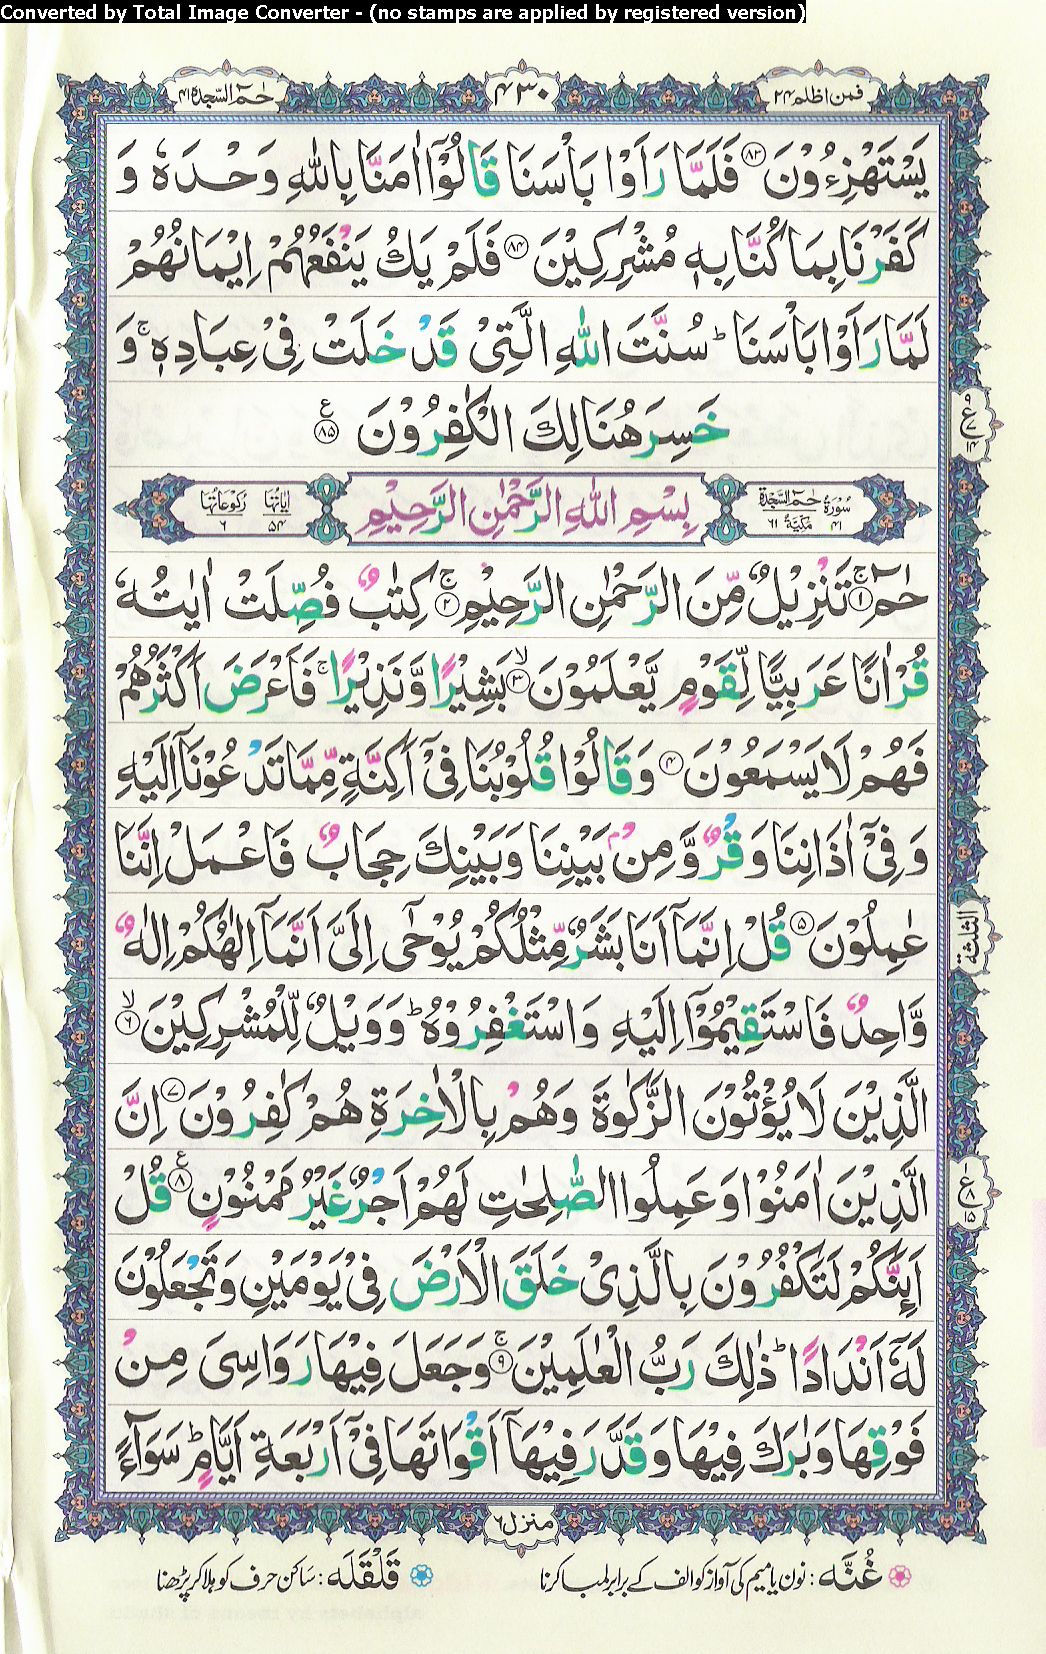 Converted by Total Image Converter - (no stamps are applied by registered version)
فمن اظلم ۲۴
۴۳۰
حٰمٓ السّجدة ۴۱
يَسْتَهْزِءُوْنَ ۝۸۳ فَلَمَّا رَاَوْا بَاْسَنَا قَالُوْۤا اٰمَنَّا بِاللّٰهِ وَحْدَهٗ وَ
كَفَرْنَا بِمَا كُنَّا بِهٖ مُشْرِكِيْنَ ۝۸۴ فَلَمْ يَكُ يَنْفَعُهُمْ اِيْمَانُهُمْ
لَمَّا رَاَوْا بَاْسَنَا ؕ سُنَّتَ اللّٰهِ الَّتِيْ قَدْ خَلَتْ فِيْ عِبَادِهٖ ۚ وَ
خَسِرَ هُنَالِكَ الْكٰفِرُوْنَ ۝۸۵ ع
ع ۹ ۱۴
سُوْرَةُ حٰمٓ السَّجْدَةِ مَكِّيَّةٌ ۴۱ ۶۱
بِسْمِ اللّٰهِ الرَّحْمٰنِ الرَّحِيْمِ
اٰيَاتُهَا ۵۴ رُكُوْعَاتُهَا ۶
حٰمٓ ۝۱ۚ تَنْزِيْلٌ مِّنَ الرَّحْمٰنِ الرَّحِيْمِ ۝۲ۚ كِتٰبٌ فُصِّلَتْ اٰيٰتُهٗ
قُرْاٰنًا عَرَبِيًّا لِّقَوْمٍ يَّعْلَمُوْنَ ۝۳ۙ بَشِيْرًا وَّنَذِيْرًا ۚ فَاَعْرَضَ اَكْثَرُهُمْ
فَهُمْ لَا يَسْمَعُوْنَ ۝۴ وَقَالُوْا قُلُوْبُنَا فِيْۤ اَكِنَّةٍ مِّمَّا تَدْعُوْنَاۤ اِلَيْهِ
وَفِيْۤ اٰذَانِنَا وَقْرٌ وَّمِنْۢ بَيْنِنَا وَبَيْنِكَ حِجَابٌ فَاعْمَلْ اِنَّنَا
عٰمِلُوْنَ ۝۵ قُلْ اِنَّمَاۤ اَنَا بَشَرٌ مِّثْلُكُمْ يُوْحٰۤى اِلَيَّ اَنَّمَاۤ اِلٰهُكُمْ اِلٰهٌ
الثلثة
وَّاحِدٌ فَاسْتَقِيْمُوْۤا اِلَيْهِ وَاسْتَغْفِرُوْهُ ؕ وَوَيْلٌ لِّلْمُشْرِكِيْنَ ۝۶ۙ
الَّذِيْنَ لَا يُؤْتُوْنَ الزَّكٰوةَ وَهُمْ بِالْاٰخِرَةِ هُمْ كٰفِرُوْنَ ۝۷ اِنَّ
الَّذِيْنَ اٰمَنُوْا وَعَمِلُوا الصّٰلِحٰتِ لَهُمْ اَجْرٌ غَيْرُ مَمْنُوْنٍ ۝۸ ع قُلْ
ع ۱ ۸ ۵
اَئِنَّكُمْ لَتَكْفُرُوْنَ بِالَّذِيْ خَلَقَ الْاَرْضَ فِيْ يَوْمَيْنِ وَتَجْعَلُوْنَ
لَهٗۤ اَنْدَادًا ؕ ذٰلِكَ رَبُّ الْعٰلَمِيْنَ ۝۹ۚ وَجَعَلَ فِيْهَا رَوَاسِيَ مِنْ
فَوْقِهَا وَبٰرَكَ فِيْهَا وَقَدَّرَ فِيْهَاۤ اَقْوَاتَهَا فِيْۤ اَرْبَعَةِ اَيَّامٍ ؕ سَوَآءً
منزل ۶
غُنَّه : نون یا میم کی آواز کو الف کے برابر لمبا کرنا
قَلْقَلَه : ساکن حرف کو ہلا کر پڑھنا